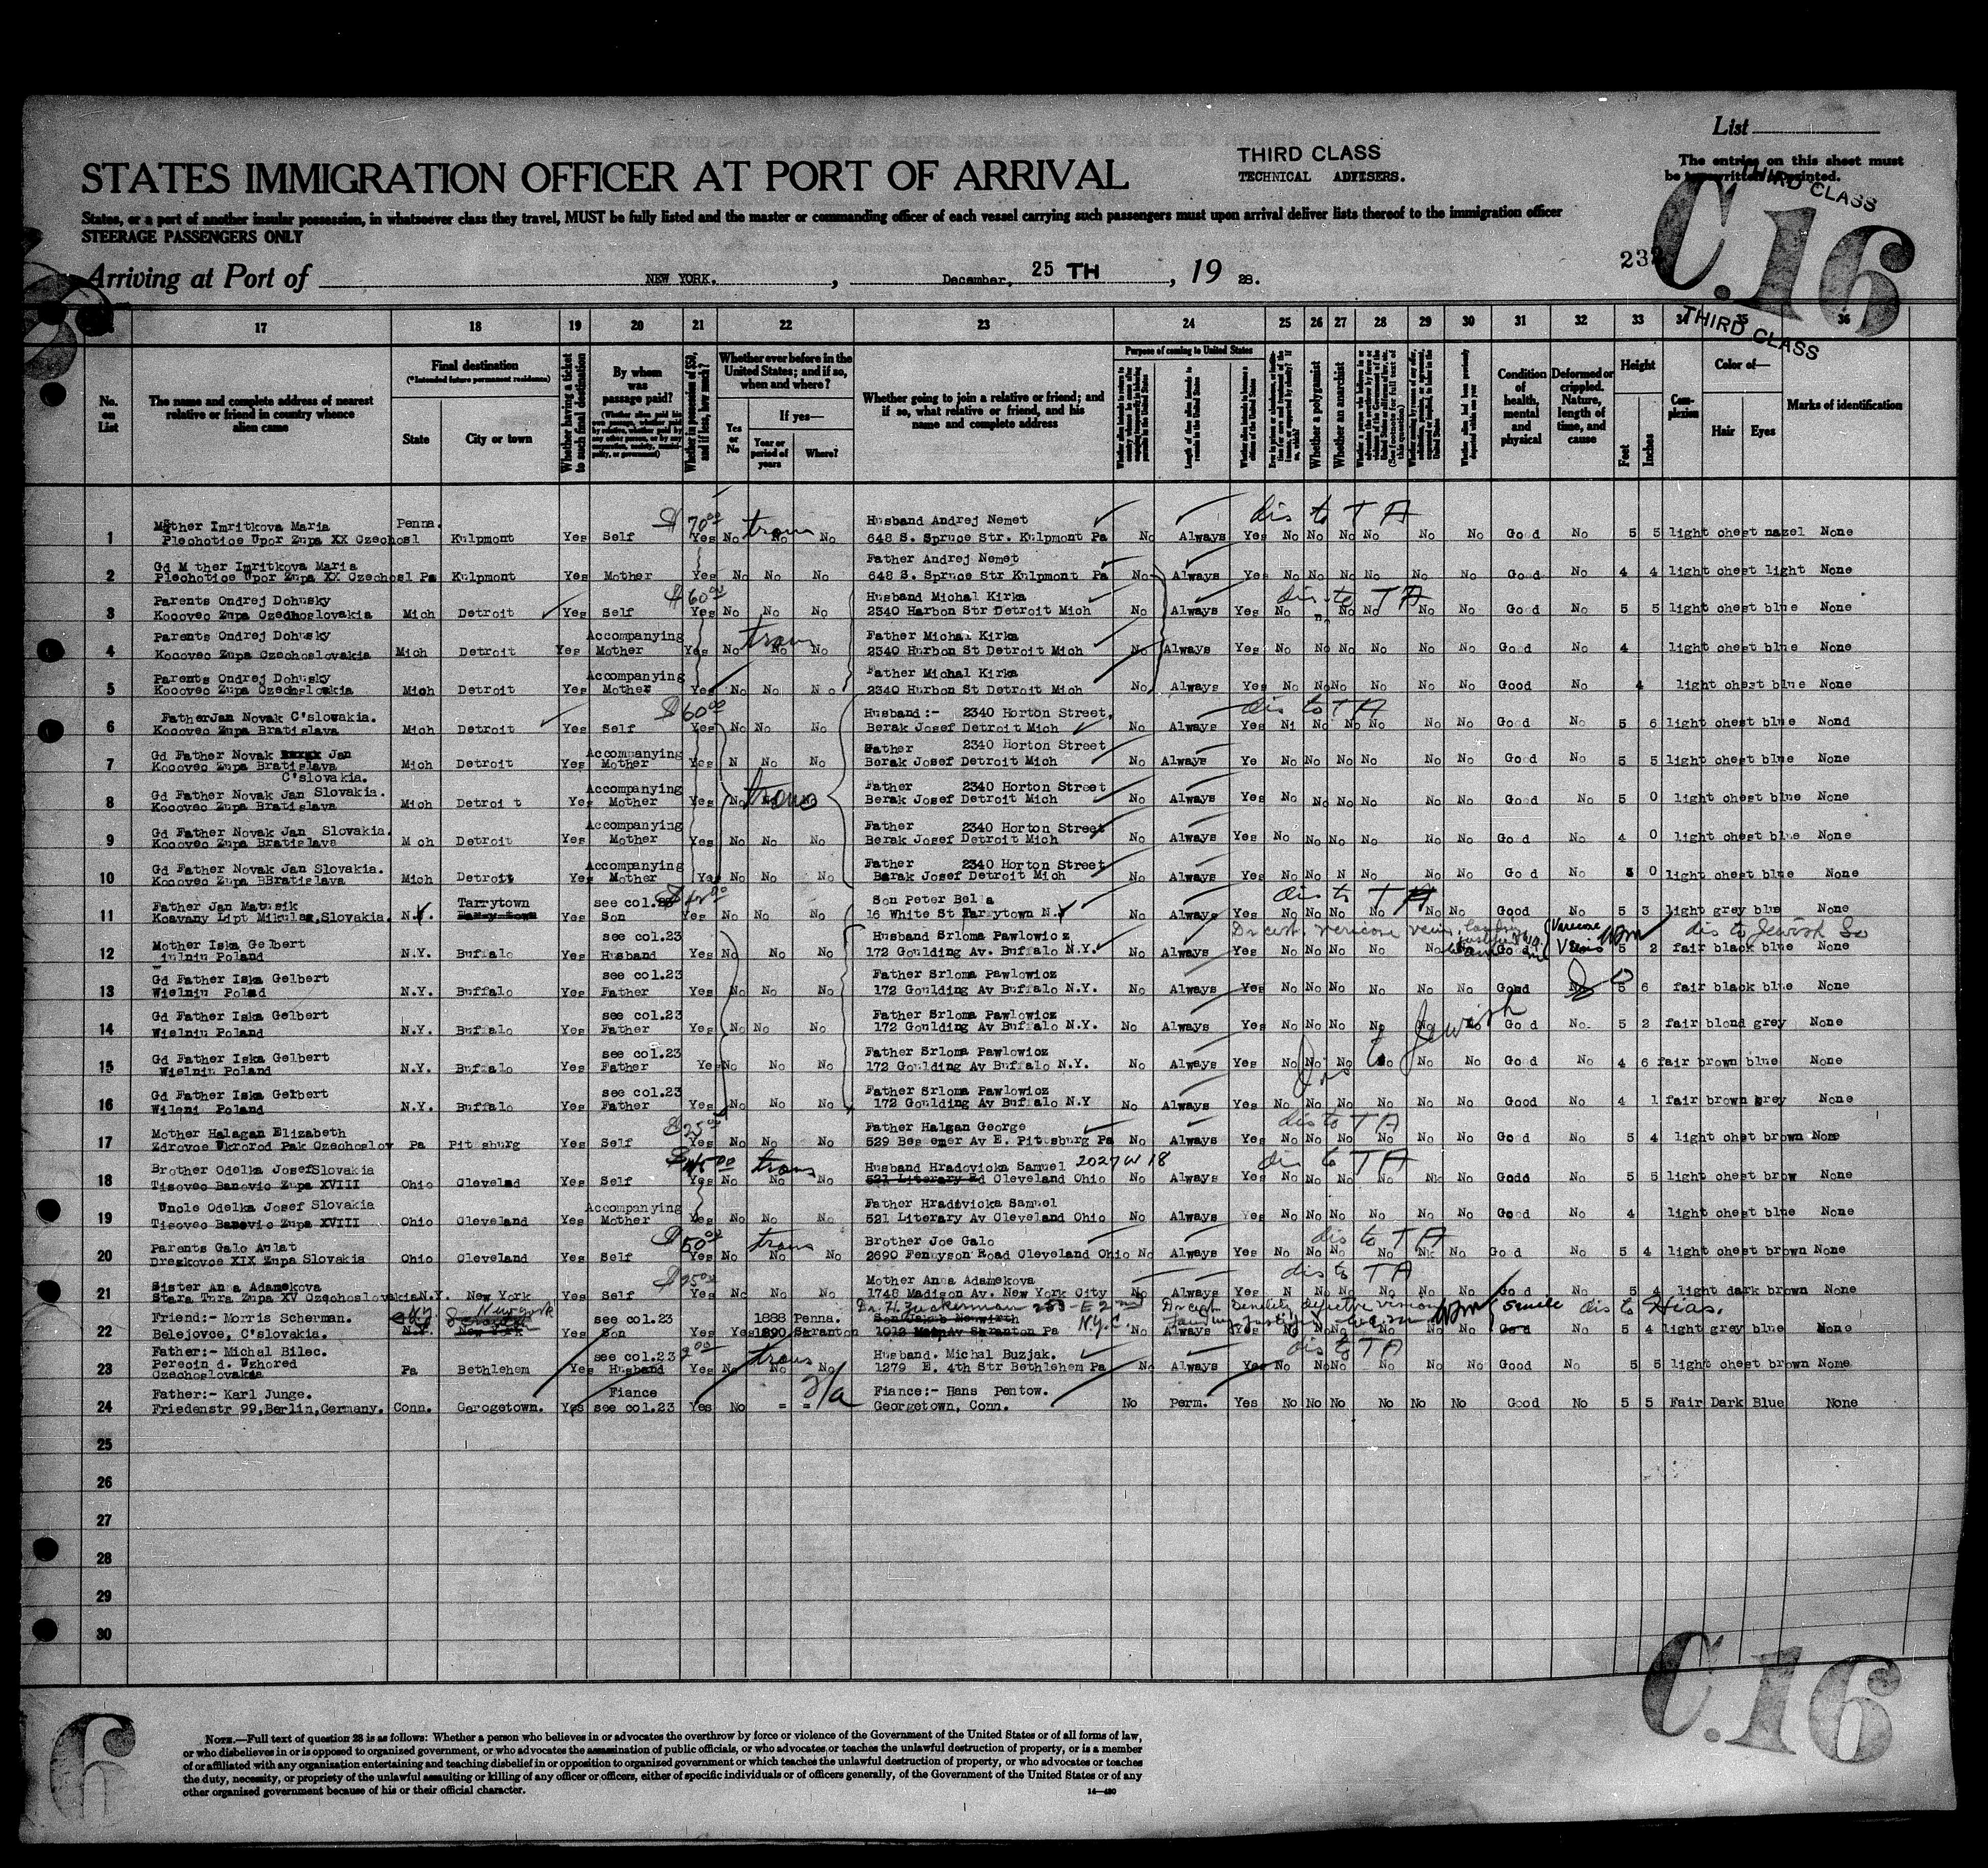 List
STATES IMMIGRATION OFFICER AT PORT OF ARRIVAL
THIRD CLASS
TECHNICAL ADVISERS.
The entries on this sheet must
be typewritten or printed.
THIRD CLASS
C.16
States, or a port of another insular possession, in whatsoever class they travel, MUST be fully listed and the master or commanding officer of each vessel carrying such passengers must upon arrival deliver lists thereof to the immigration officer
STEERAGE PASSENGERS ONLY
Arriving at Port of NEW YORK. , December, 25 TH , 19 28.
THIRD CLASS
17 18 19 20 21 22 23 24 25 26 27 28 29 30 31 32 33 34 35 36
No. on List
The name and complete address of nearest relative or friend in country whence alien came
Final destination
(*Intended future permanent residence)
State
City or town
Whether having a ticket to such final destination
By whom was passage paid?
Whether in possession of $50, and if less, how much?
Whether ever before in the United States; and if so, when and where?
Yes or No
If yes—
Year or period of years
Where?
Whether going to join a relative or friend; and if so, what relative or friend, and his name and complete address
Purpose of coming to United States
Length of time alien intends to remain in the United States
Whether a polygamist
Whether an anarchist
Condition of health, mental and physical
Deformed or crippled. Nature, length of time, and cause
Height
Feet
Inches
Complexion
Color of—
Hair
Eyes
Marks of identification
1 Mother Imritkova Maria Penna. $ 70 00 trans Husband Andrej Nemet dis to T A
Plechotice Upor Zupa XX Czechosl Kulpmont Yes Self Yes No No No 648 S. Spruce Str. Kulpmont Pa No Always Yes No No No No No No Good No 5 5 light chest hazel None
2 Gd M ther Imritkova Maria Father Andrej Nemet
Plechotice Upor Zupa XX Czechosl Pa Kulpmont Yes Mother Yes No No No 648 S. Spruce Str Kulpmont Pa No Always Yes No No No No No No Good No 4 4 light chest light None
3 Parents Ondrej Dohnsky $60 00 Husband Michal Kirka dis to T A
Kocovec Zupa Czechoslovakia Mich Detroit Yes Self Yes No No No 2340 Harbon Str Detroit Mich No Always Yes No No No No No Good No 5 5 light chest blue None
4 Parents Ondrej Dohnsky Accompanying trans Father Michal Kirka
Kocovec Zupa Czechoslovakia Mich Detroit Yes Mother Yes No No No 2340 Hurbon St Detroit Mich No Always Yes No No No No No No Good No 4 light chest blue None
5 Parents Ondrej Dohnsky Accompanying Father Michal Kirka
Kocovec Zupa Czechoslovakia Mich Detroit Yes Mother Yes No No N o 2340 Hurbon St Detroit Mich No Always Yes No No No No No No Good No 4 light chest blue None
6 FatherJan Novak C'slovakia. $60 00 Husband :- 2340 Horton Street. dis to T A
Kocovec Zupa Bratislava Mich Detroit Yes Self Yes No No No Berak Josef Detroit Mich No Always Yes Ni No No No No No Good No 5 6 light chest blue Nond
7 Gd Father Novak Jan Accompanying Father 2340 Horton Street
Kocovec Zupa Bratislava Mich Detroit Yes Mother Yes N No No Berak Josef Detroit Mich No Always Ye No No No No No No Good No 5 5 light chest blue None
C'slovakia.
8 Gd Father Novak Jan Slovakia. Accompanying trans Father 2340 Horton Street
Kocovec Zupa Bratislava Mich Detroi t Yes Mother Yes No No No Berak Josef Detroit Mich No Always Yes No No No No No No Good No 5 0 light chest blue None
9 Gd Father Novak Jan Slovakia. Accompanying Father 2340 Horton Street
Kocovec Zupa Bratislava M ch Detroit Yes Mother Yes No No No Berak Josef Detroit Mich No Always Yes No No No No No No Good No 4 0 light chest blue None
10 Gd Father Novak Jan Slovakia. Accompanying Father 2340 Horton Street
Kocovec Zupa BBratislava Mich Detroit Yes Mother Yes No No No Berak Josef Detroit Mich No Always Yes No No N No No No Good No 0 light chest blue None
11 Father Jan Matusik Tarrytown see col. Son Peter Bella dis to T A
Koavany Lipt Mikulas,Slovakia. N.Y. Yes Son Yes No No No 16 White St Tarrytown N.Y No Always Yes No No No No No No Good No 5 3 light grey blue None
12 Mother Iska Gelbert see col.23 Husband Srloma Pawlowicz dis to Jewish So
Poland N.Y. Buffalo Yes Husband Yes No No No 172 Goulding Av. Buffalo N.Y. No Always Yes No No No No No 5 2 fair black blue None
13 Gd Father Iska Gelbert see col.23 Father Srloma Pawlowicz
Wielniu Polad N.Y. Buffalo Yes Father Yes No No No 172 Goulding Av Buffalo N.Y. No Always Yes No No No No No No Good 5 6 fair black blue None
14 Gd Father Iska Gelbert see col.23 Father Srloma Pawlowicz
Wielniu Poland N.Y. Buffalo Yes Father Yes No No No 172 Goulding Av Buffalo N.Y. No Always Yes No No No No No No Good No 5 2 fair blond grey None
15 Gd Father Iska Gelbert see col.23 Father Srloma Pawlowicz dis to Jewish
Wielniu Poland N.Y. Buffalo Yes Father Yes No No No 172 Goulding Av Buffalo N.Y. No Always Yes No No No No No No Good No 4 6 fair brown blue None
16 Gd Father Iska Gelbert see col.23 Father Srloma Pawlowicz
Wileni Poland N.Y. Buffalo Yes Father Yes No No No 172 Goulding Av Buffalo N.Y No Always Yes No No No No No No Good No 4 1 fair brown grey None
17 Mother Halagan Elizabeth $25 00 Father Halgan George dis to T A
Zdrovce Ukrorod Pak Czechoslov Pa Pit sburg Yes Self Yes No No No 529 Bessemer Av E. Pittsburg Pa No Always Yes No No No No No No Good No 5 4 light chst brown None
18 Brother Odelka JosefSlovakia trans Husband Hradovicka Samuel 2027 W 18 dis to T A
Tisovec Banovic Zupa XVIII Ohio Clevelad Yes Self Yes No No No 521 Literary Rd Cleveland Ohio No Always Yes No No No No No No Godd No 5 5 light chest brow None
19 Uncle Odelka Josef Slovakia Accompanying Father Hradovicka Samuel
Tisovec Banovic Zupa XVIII Ohio Cleveland Yes Mother Yes No No No 521 Literary Av Cleveland Ohio No Always Yes No No No No No No Good No 4 light chest blue None
20 Parents Galo Aulat $50 00 trans Brother Joe Galo dis to T A
Drezkovce XIX Zupa Slovakia Ohio Cleveland Yes Self Yes No No No 2690 Fennyson Road Cleveland Ohio No Always Yes No No No No No Good No 5 4 light chest brown None
21 Sister Anna Adamekova $25 00 Mother Anna Adamekova dis to T A
Stara Tura Zupa XV CzechoslovakiaN.Y. New York Yes Self Yes No No No 1746 Madison Av. New York City No Always Yes N No No No No No Good No 5 4 light dark brown None
22 Friend:- Morris Scherman. New York see col.23 1888 Penna. Dr. H. Zuckerman 253 - E 2nd N.Y.C. senile dis to Hias.
Belejovce, C'slovakia. N.Y. New York Yes Son Yes Yes 1890 Scranton Scranton Pa No Always Yes No No No No No No Good No 5 4 light grey blue None
23 Father:- Michal Bilec. see col.23 trans Husband. Michal Buzjak. dis to T A
Perecin d. Uzhored Pa Bethlehem Yes Husband Yes No No No 1279 E. 4th Str Bethlehem Pa No Always Yes No No No No No No Good No 5 5 light chest brown None
Czechoslovakia
24 Father:- Karl Junge. Fiance Fiance:- Hans Pentow.
Friedenstr 99,Berlin,Germany. Conn. Gerogetown. Yes see col.23 Yes No = = Georgetown, Conn. No Perm. Yes No No No No No No Good No 5 5 Fair Dark Blue None
25
26
27
28
29
30
C.16
6
NOTE.—Full text of question 28 is as follows: Whether a person who believes in or advocates the overthrow by force or violence of the Government of the United States or of all forms of law,
or who disbelieves in or is opposed to organized government, or who advocates the assassination of public officials, or who advocates or teaches the unlawful destruction of property, or is a member
of or affiliated with any organization entertaining and teaching disbelief in or opposition to organized government or which teaches the unlawful destruction of property, or who advocates or teaches
the duty, necessity, or propriety of the unlawful assaulting or killing of any officer or officers, either of specific individuals or of officers generally, of the Government of the United States or of any
other organized government because of his or their official character.
14—430